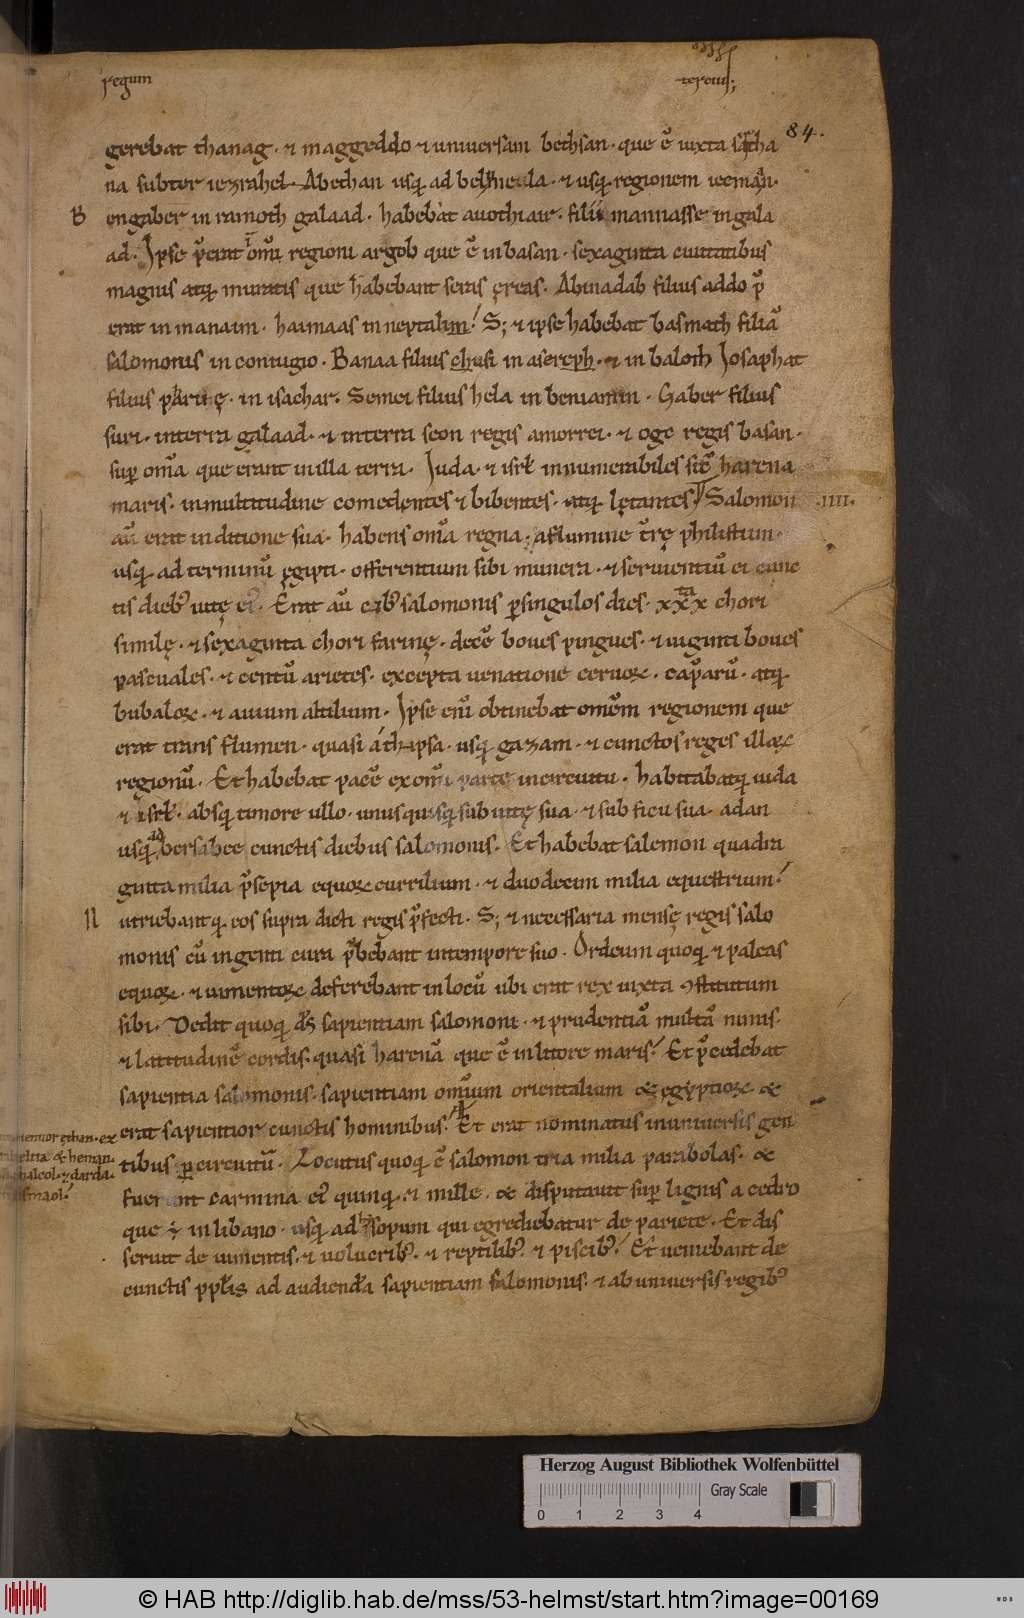 regum terciuſ;
84.
gerebat thanag· ⁊ maggeddo ⁊ uniuersam bethsan· que ē iuxta sartha
na subter iezrahel· Abethan usq; ad belmeula· ⁊ usq; regionem iecmaan·
B engaber in ramoth galaad· habebat auothiair· filii mannasse in gala
ad· Ipse p̄erat in om̄i regioni argob que ē in basan· sexaginta ciuitatibus
magnis atq; muratis que habebant seras ęreas· Abinadab filius addo p̄
erat in manaim· haimaas in neptalim! S; ⁊ ipse habebat basmath filiā
salomonis in coniugio· Banaa filius chusi in asereph· ⁊ in baloth Iosaphat
filius pharuę· in isachar· Semei filius hela in beniamin· Gaber filius
suri· in terra galaad· ⁊ in terra seon regis amorrei· ⁊ oge regis basan·
sup om̄a que erant in illa terra· Iuda ⁊ isrł innumerabiles sic̄ harena
maris· in multitudine comedentes ⁊ bibentes· atq; lętantes! Salomon ·IIII·
aū erat in ditione sua· habens om̄a regna· a flumine t̄rę philistium·
usq; ad terminū ęgipti· offerentium sibi munera· ⁊ seruientiū ei cunc
tis dieb; uitę ei᷒· Erat aū cib᷒ salomonis p singulos dies· xxx chori
similę· ⁊ sexaginta chori farinę· decē boues pingues· ⁊ uiginti boues
pascuales· ⁊ centū arietes· excepta uenatione ceruoꝝ· cap̄arū· atq;
bubaloꝝ· ⁊ auium altilium· Ipse eni̅ obtinebat omēm regionem que
erat trans flumen· quasi a thapsa· usq; gazam· ⁊ cunctos reges illaꝝ
regionū· Et habebat pacē ex om̄i parte in circuitu· habitabatq; iuda
⁊ isrł· absq; timore ullo· unusquisq; sub uitę sua· ⁊ sub ficu sua· a dan
usq; ad bersabee cunctis diebus salomonis· Et habebat salemon quadra
ginta milia p̄sepia equoꝝ currilium· ⁊ duodecim milia equestrium!
N utriebantq; eos supra dicti regis p̄fecti· S; ⁊ necessaria mensę regis salo
monis cū ingenti cura p̄bebant in tempore suo· Ordeum quoq; ⁊ paleas
equoꝝ· ⁊ iumentoꝝ deferebant in locū ubi erat rex iuxta ꝯstitutum
sibi· Dedit quoq; ds̄ sapientiam salomoni· ⁊ prudentiā multā nimis·
⁊ latitudinē cordis· quasi harenā que ē in litore maris! Et p̄cedebat
sapientia salomonis· sapientiam omium orientalium & egyptioꝝ· &
erat sapientior cunctis hominibus! Et erat nominatus in uniuersis gen
tibus p circuitū· Locutus quoq; ē salomon tria milia parabolas· &
fuerunt carmina ei᷒ quinq; ⁊ mille· & disputauit sup lignis a cedro
que ÷ in libano· usq; ad hysopum qui egrediebatur de pariete· Et dis
seruit de iumentis· ⁊ uolucrib;· ⁊ reptilib;· ⁊ piscib;! Et ueniebant de
cunctis pplis ad audiendā sapientiam salomonis· ⁊ ab uniuersis regib;
ethan· ex
& heman·
chalcol· ⁊ darda·
Herzog August Bibliothek Wolfenbüttel
Gray Scale
0 1 2 3 4
© HAB http://diglib.hab.de/mss/53-helmst/start.htm?image=00169